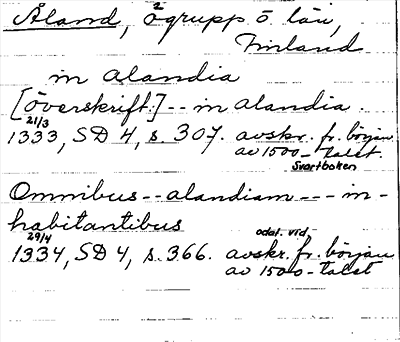 Åland, ögrupp o. län,
2
Finland
in alandia
[överskrift:] -- in alandia.
21/3
1333, SD 4, s. 307. avskr. fr. början
av 1500-talet.
Svartboken
Omnibus -- alandiam --- in-
habitantibus
29/4
odat. vid.
1334, SD 4, s. 366. avskr. fr. början
av 1500-talet